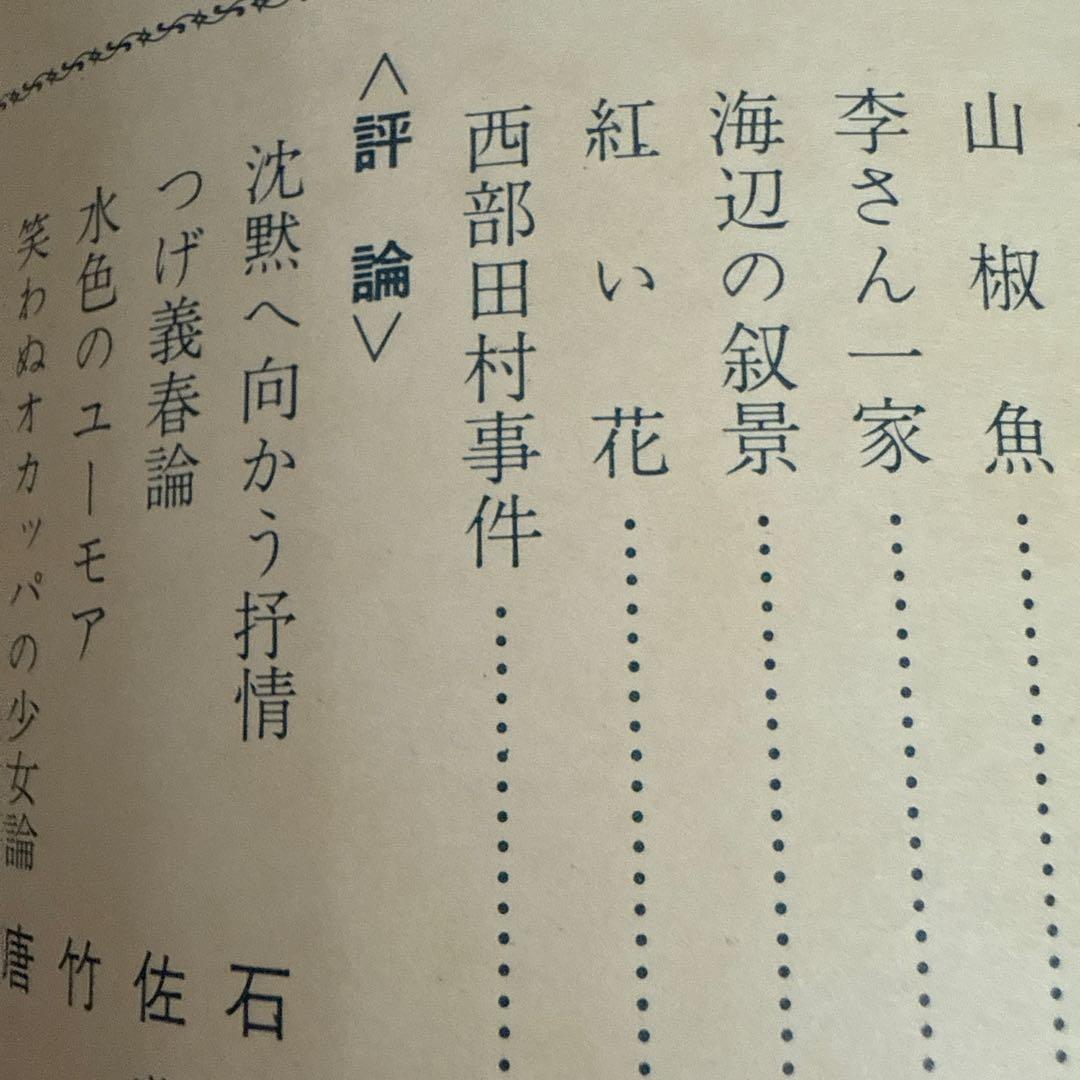 山椒魚……………………
李さん一家……………………
海辺の叙景……………………
紅い花……………………
西部田村事件……………………
〈評論〉
沈黙へ向かう抒情 石
つげ義春論 佐
水色のユーモア 竹
笑わぬオカッパの少女論 唐